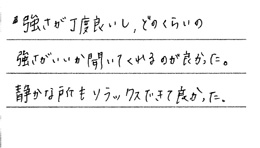 強さが丁度良いし、どのくらいの
強さがいいか聞いてくれるのが良かった。
静かな所もリラックスできて良かった。